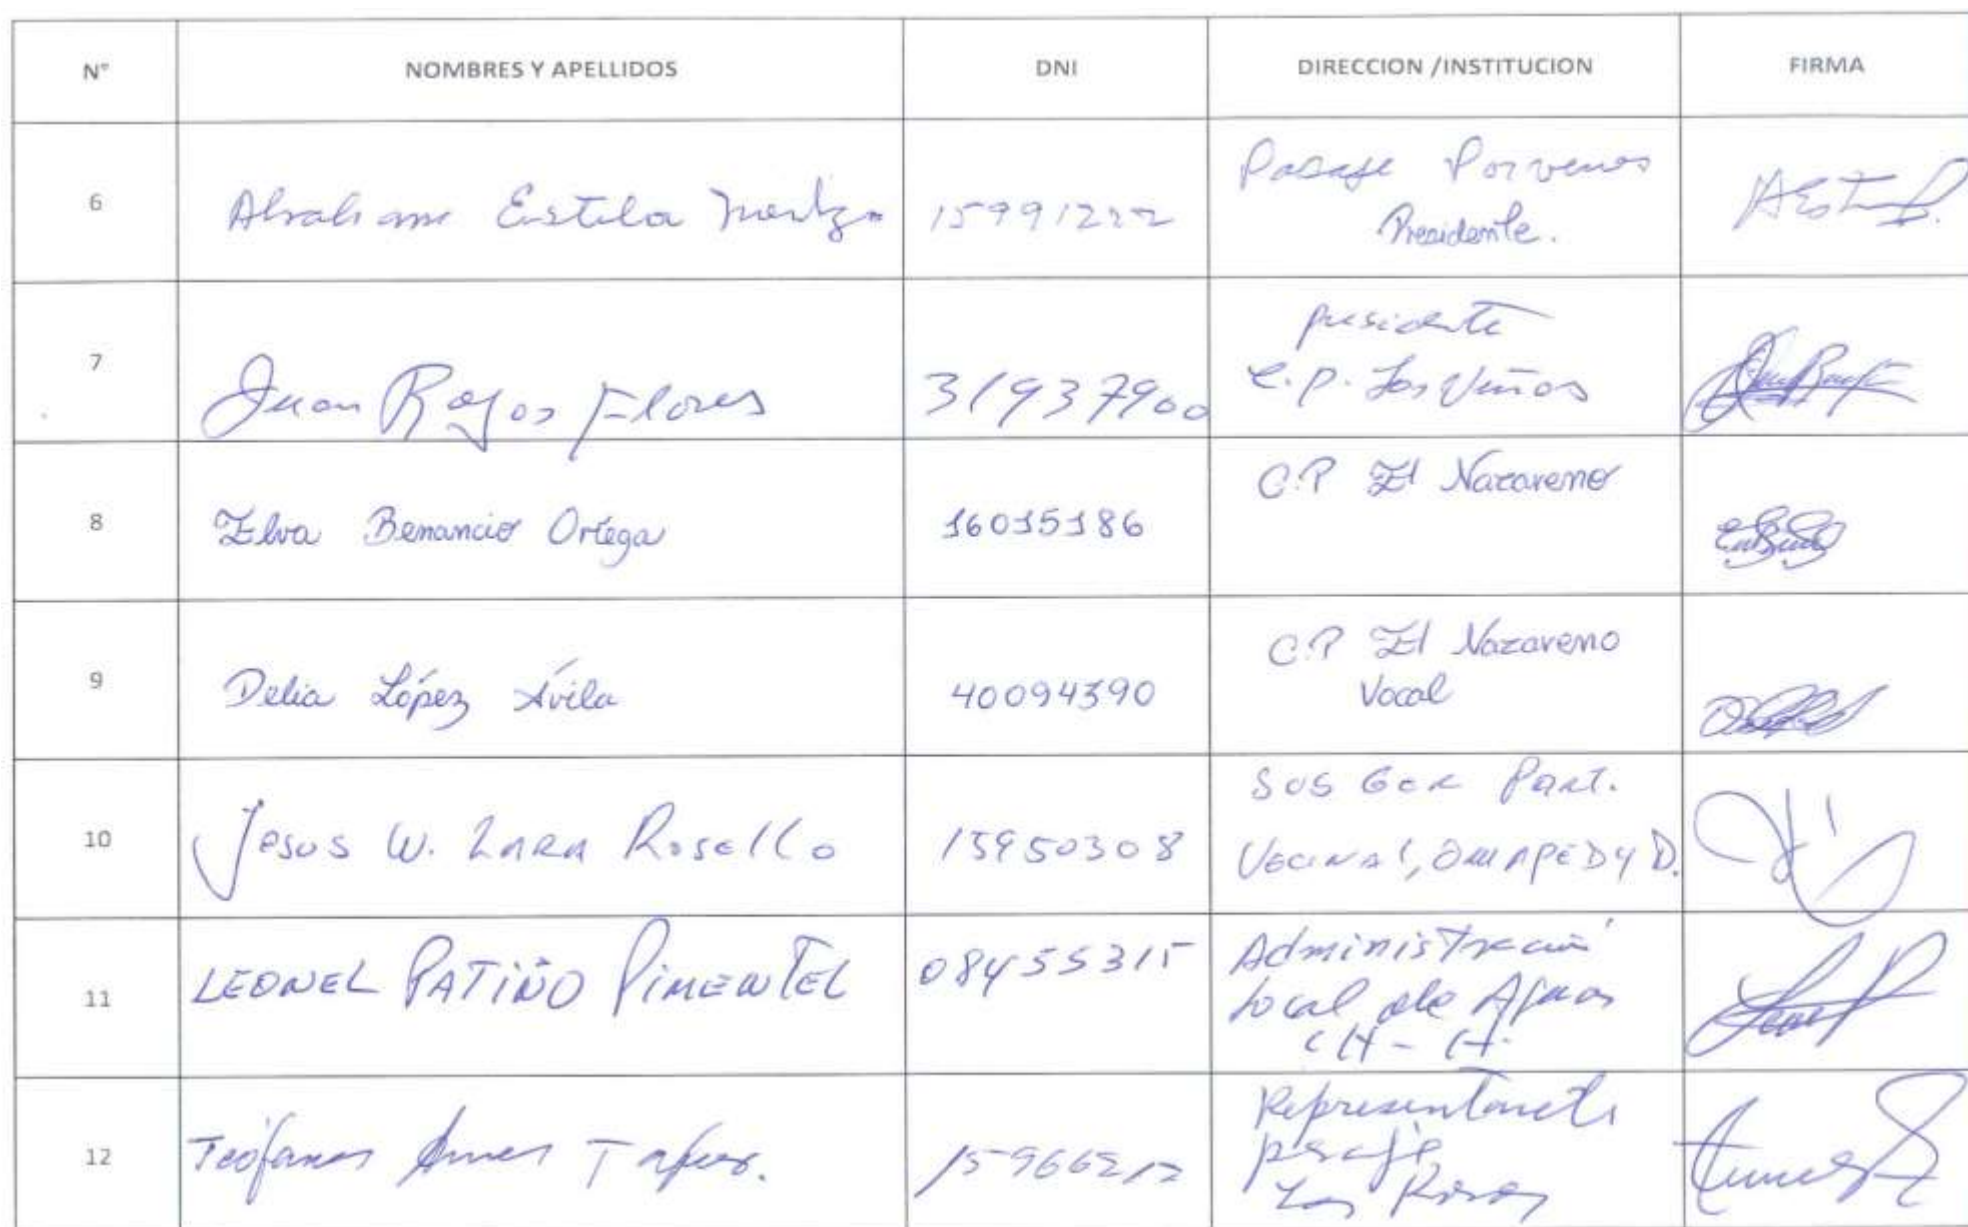 N° NOMBRES Y APELLIDOS DNI DIRECCION /INSTITUCION FIRMA
6 Abraham Estela 15991222 Pasaje Porvenir
Presidente.
7 Juan Rojas Flores 31937900 presidente
C.P. Los Viños
8 Elva Benancio Ortega 16015186 C.P El Nazareno
9 Delia López Ávila 40094390 C.P El Nazareno
Vocal
10 Jesus W. LARA Rosello 15950308 SUS GER PART.
VECINAL, OMAPED Y D.
11 LEONEL PATIÑO PIMENTEL 08455315 Administración
Local de Aguas
CH - H.
12 Teófanes Ames Tafur. Representante
pasaje
Las Rosas